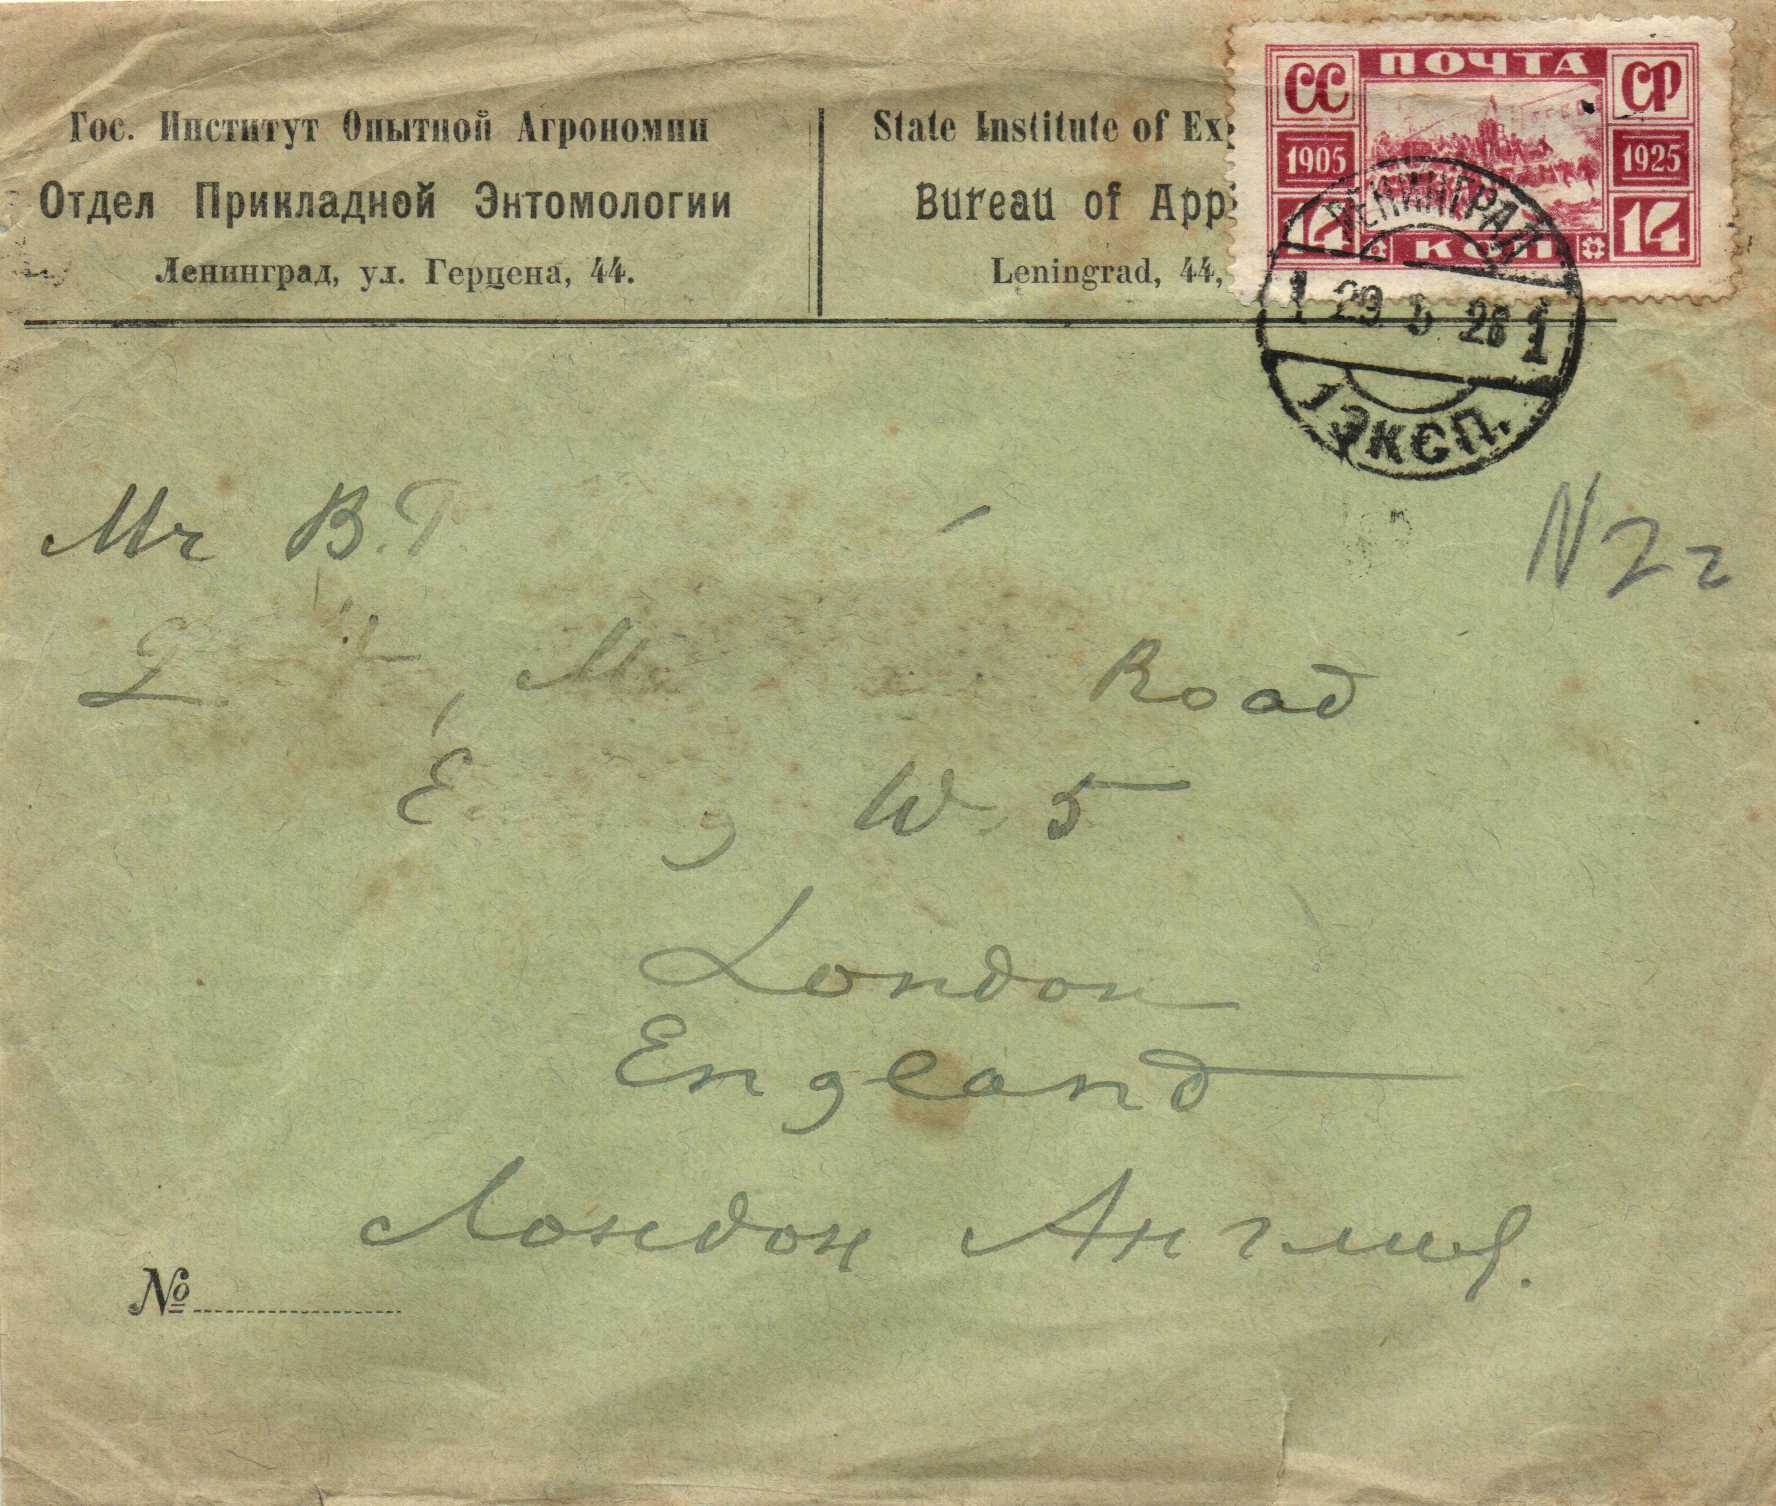 Гос. Институт Опытной Агрономии
Отдел Прикладной Энтомологии
Ленинград, ул. Герцена, 44.
State Institute of Ex
Bureau of App
Leningrad, 44,
ПОЧТА
СС СР
1905 1925
14 КОП 14
ЛЕНИНГРАД
1 29 5 26 1
1 ЭКСП.
Mr B.
Road
W 5
London
England
Лондон Англия.
№